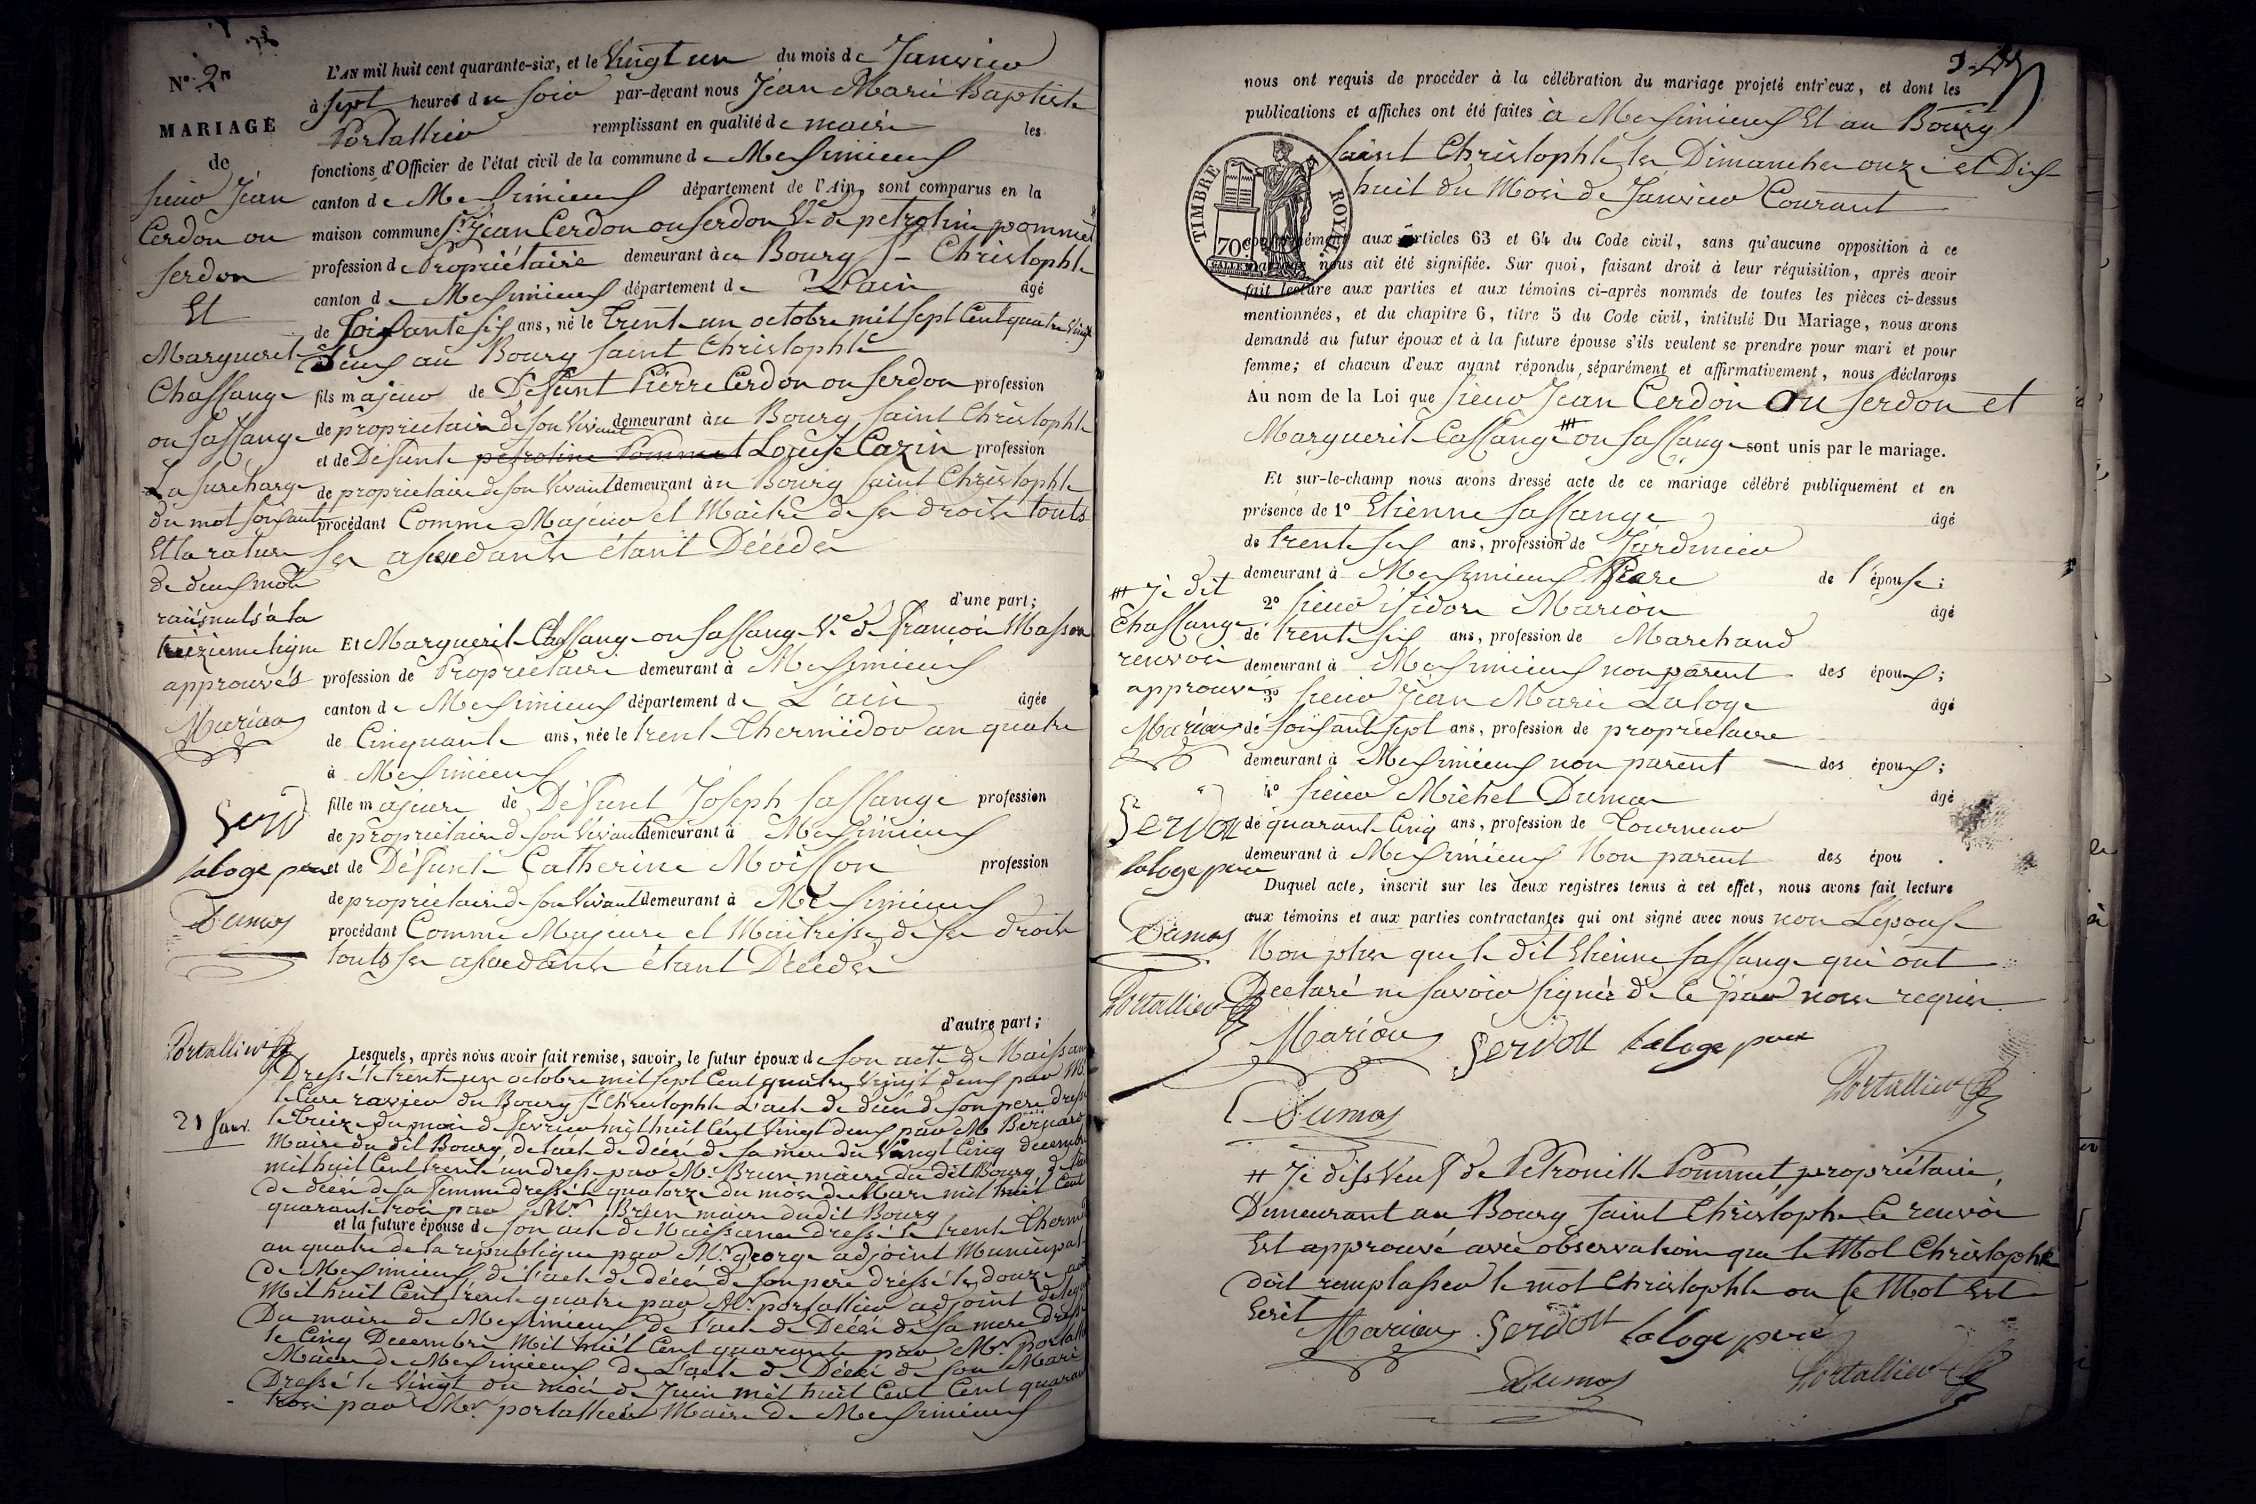 N° 2
MARIAGE
de
sieur Jean
Cerdon ou
Serdon
Et
Marguerite
Chassange
ou Sassange
La surcharge
du mot soixante
Et la rature
de deux mots
raiés nuls à la
treizième ligne
approuvés
Marion
Serd
Laloge père
Dumas
Portallier
21 Janv.
L'AN mil huit cent quarante-six, et le Vingt un du mois de Janvier
à sept heures du soir par-devant nous Jean Marie Baptiste
Portallier remplissant en qualité de maire les
fonctions d'Officier de l'état civil de la commune de Meximieux
canton de Meximieux département de l'Ain, sont comparus en la
maison commune Sr Jean Cerdon ou Serdon Ve de petroline pommet
profession de Propriétaire demeurant à Bourg St Christophle
canton de Meximieux département de L'ain âgé
de Soixante six ans, né le trente un octobre mil sept Cent quatre Vingt
deux au Bourg Saint Christophle
fils majeur de Défunt Pierre Cerdon ou Serdon profession
de propriétaire de son Vivant demeurant à Bourg Saint Christophle
et de Défunte petroline Pommet Louise Cazin profession
de propriétaire de son Vivant demeurant à Bourg Saint Christophle
procédant Comme Majeur et Maître de ses droits touts
ses ascendants étant Décédés
d'une part;
Et Marguerite Chassange ou Sassange Ve de François Masson
profession de Propriétaire demeurant à Meximieux
canton de Meximieux département de L'ain âgée
de Cinquante ans, née le trente Thermidor an quatre
à Meximieux
fille majeure de Défunt Joseph Sassange profession
de propriétaire de son Vivant demeurant à Meximieux
et de Défunte Catherine Moisson profession
de propriétaire de son Vivant demeurant à Meximieux
procédant Comme Majeure et Maîtresse de ses droits
touts ses ascendants étant Décédés
d'autre part;
Lesquels, après nous avoir fait remise, savoir, le futur époux de son acte de Naissance
Dressé le trente un octobre mil sept Cent quatre Vingt deux par Mr
le Curé ravier du Bourg St Christophle L'acte de décès de son père dressé
le treize du mois de février mil huit Cent Vingt deux par Mr Bernard
Maire du dit Bourg, de l'acte de décès de sa mère du Vingt Cinq décembre
mil huit Cent trente un dressé par Mr Brun maire du dit Bourg, de l'acte
de décès de sa femme dressé le quatorze du mois de Mars mil huit Cent
quarante trois par Mr Brun maire dudit Bourg
et la future épouse de son acte de Naissance dressé le trente Thermidor
an quatre de la république par Mr george adjoint Municipal
de Meximieux, de l'acte de décès de son père dressé le douze
Mil huit Cent trente quatre par Mr portallier adjoint délégué
Du maire de Meximieux de l'acte de Décès de sa mère dressé
le Cinq Décembre Mil huit Cent quarante par Mr Portallier
Maire de Meximieux de L'acte de Décès de son Mari
Dressé le Vingt du mois de Juin mil huit Cent Cent quarante
trois par Mr portallier Maire de Meximieux
nous ont requis de procéder à la célébration du mariage projeté entr'eux, et dont les
publications et affiches ont été faites à Meximieux Et au Bourg
Saint Christophle les Dimanches onze et Dix
huit du Mois de Janvier Courant
TIMBRE ROYAL
70c
conformément aux articles 63 et 64 du Code civil, sans qu'aucune opposition à ce
mariage nous ait été signifiée. Sur quoi, faisant droit à leur réquisition, après avoir
fait lecture aux parties et aux témoins ci-après nommés de toutes les pièces ci-dessus
mentionnées, et du chapitre 6, titre 5 du Code civil, intitulé Du Mariage, nous avons
demandé au futur époux et à la future épouse s'ils veulent se prendre pour mari et pour
femme; et chacun d'eux ayant répondu, séparément et affirmativement, nous déclarons
Au nom de la Loi que sieur Jean Cerdon ou Serdon et
Marguerite Cassange ou Sassange sont unis par le mariage.
Et sur-le-champ nous avons dressé acte de ce mariage célébré publiquement et en
présence de 1° Etienne Sassange âgé
de trente six ans, profession de Jardinier
demeurant à Meximieux frère de l'épouse;
2° sieur isidore Marion âgé
de trente six ans, profession de Marchand
demeurant à Meximieux non parent des époux;
3° sieur Jean Marie Laloge âgé
de soixante sept ans, profession de propriétaire
demeurant à Meximieux non parent des époux;
4° sieur Michel Dumas âgé
de quarante Cinq ans, profession de Tourneur
demeurant à Meximieux Non parent des épou .
Duquel acte, inscrit sur les deux registres tenus à cet effet, nous avons fait lecture
aux témoins et aux parties contractantes qui ont signé avec nous non Lépouse
Non plus que le dit Etienne Sassange qui ont
Déclaré ne savoir signer de ce par nous requis
Marion Serdon Laloge père
Dumas Portallier
je dit
Chassange
renvoi
approuvé
Marion
Serdon
laloge père
Dumas
Portallier
# Je dis Veuf de Petronille Pommet propriétaire,
Demeurant au Bourg Saint Christophe Ce renvoi
Est approuvé avec observation que le Mot Christophe
doit remplasser le mot Christophle ou Ce Mot Est
Ecrit
Marion Serdon Laloge père
Dumas Portallier